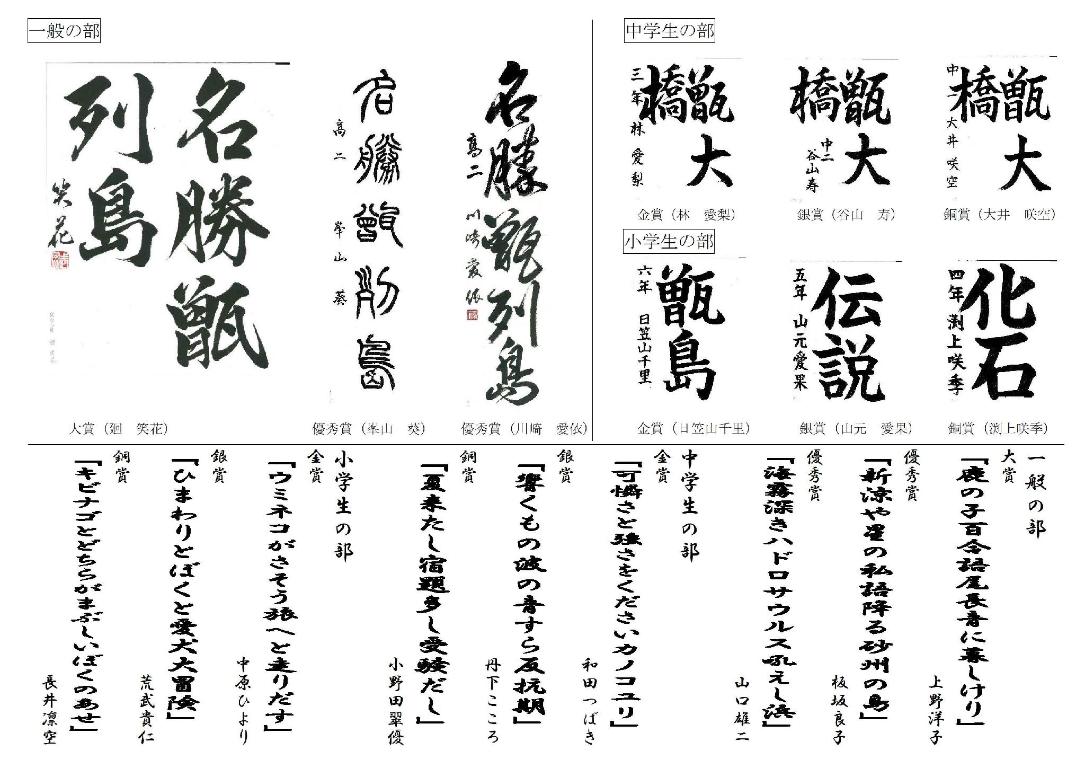 一般の部
名勝甑
列島
笑花
大賞（廻　笑花）
名勝甑列島
高二　峯山　葵
優秀賞（峯山　葵）
名勝甑列島
高二　川﨑愛依
優秀賞（川﨑　愛依）
中学生の部
甑大
橋
三年　林　愛梨
金賞（林　愛梨）
甑大
橋
中二　谷山寿
銀賞（谷山　寿）
甑大
橋
中一　大井　咲空
銅賞（大井　咲空）
小学生の部
甑島
六年　日笠山千里
金賞（日笠山千里）
伝説
五年　山元愛果
銀賞（山元　愛果）
化石
四年　渕上咲季
銅賞（渕上咲季）
一般の部
大賞
「鹿の子百合語尾長音に暮しけり」
上野洋子
優秀賞
「新涼や星の私語降る砂州の島」
板坂良子
優秀賞
「海霧深きハドロサウルス吼えし浜」
山口雄二
中学生の部
金賞
「可憐さと強さをくださいカノコユリ」
和田つばき
銀賞
「響くもの波の音すら反抗期」
丹下こころ
銅賞
「夏来たし宿題多し受験だし」
小野田翠優
小学生の部
金賞
「ウミネコがさそう旅へと走りだす」
中原ひより
銀賞
「ひまわりとぼくと愛犬大冒険」
荒武貴仁
銅賞
「キビナゴとどちらがまぶしいぼくのあせ」
長井凛空